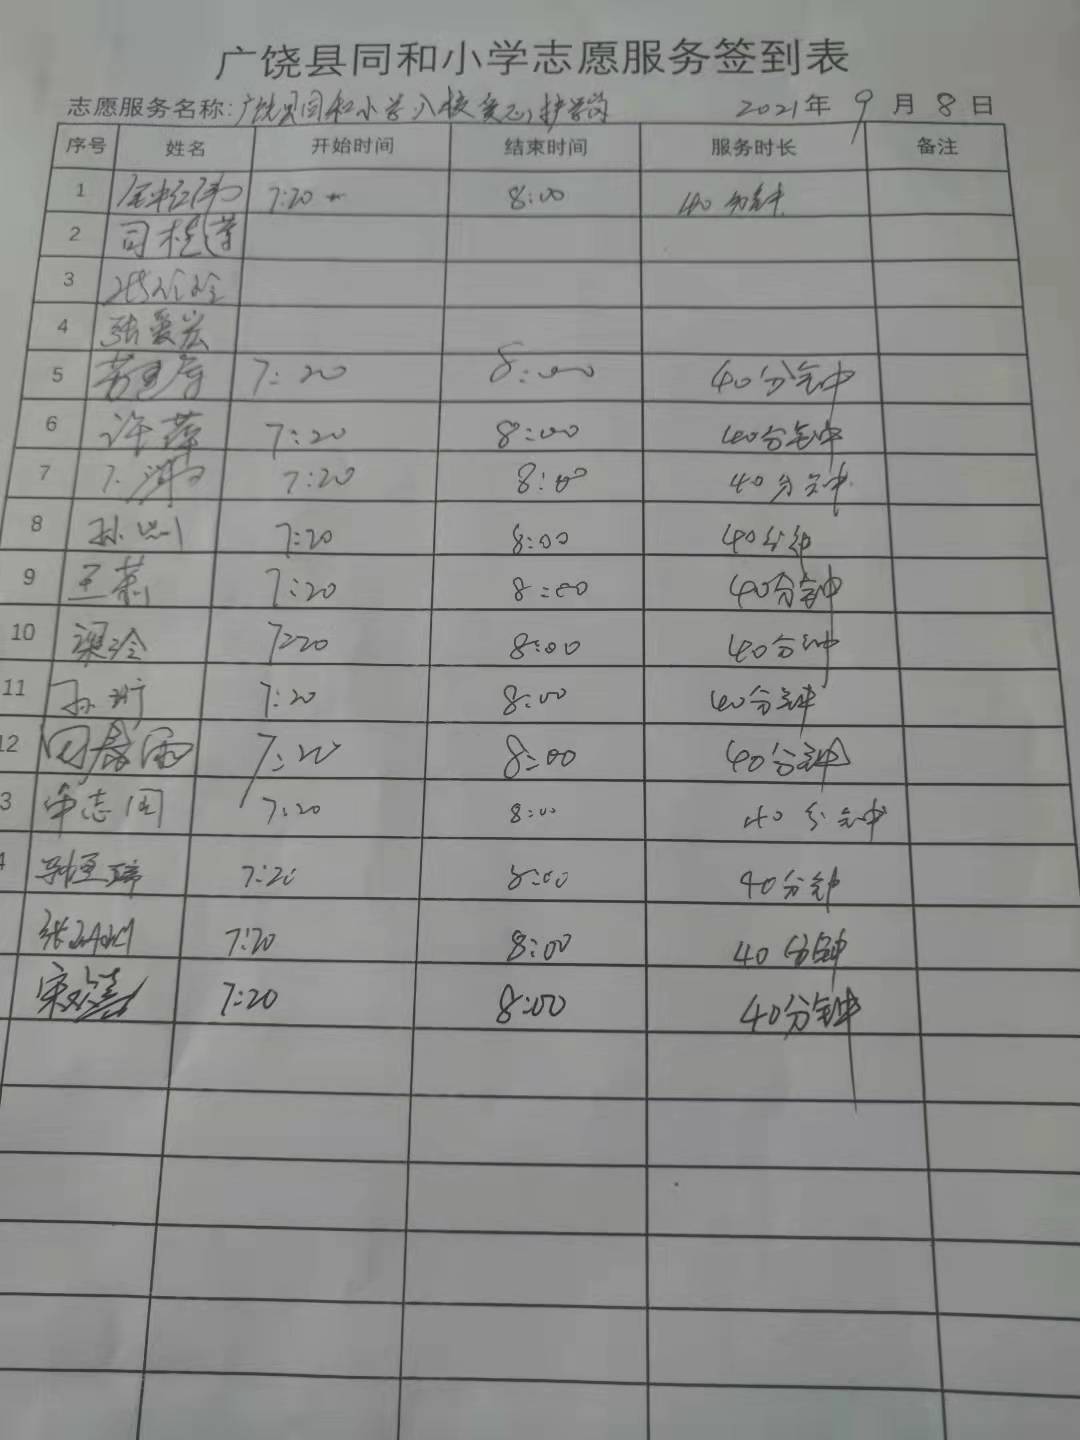 广饶县同和小学志愿服务签到表
志愿服务名称:广饶县同和小学入校爱心护学岗 2021年9月8日
序号 姓名 开始时间 结束时间 服务时长 备注
1 7:20 8:00 40分钟
2 司桂莲
3
4 张爱宏
5 7:20 8:00 40分钟
6 许萍 7:20 8:00 40分钟
7 7:20 8:00 40分钟
8 孙 7:20 8:00 40分钟
9 王莉 7:20 8:00 40分钟
10 梁玲 7:20 8:00 40分钟
11 孙 7:20 8:00 40分钟
12 7:20 8:00 40分钟
3 志国 7:20 8:00 40分钟
4 7:20 8:00 40分钟
张 7:20 8:00 40分钟
宋 7:20 8:00 40分钟